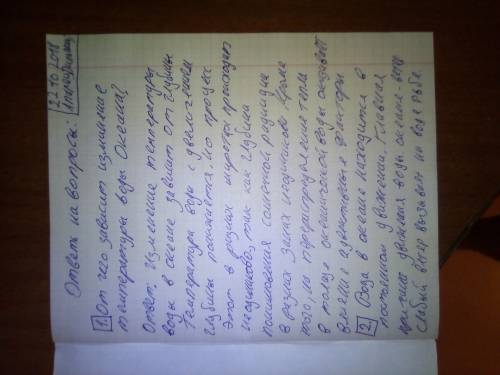 22.10.2018
Ответь на вопросы:
1. От чего зависит изменение
температуры воды Океана?
Ответ: Изменение температуры
воды в океане зависит от глубины
Температура воды с увеличением
глубины понижается. Но процесс
этот в разных широтах происходит
так как глубина
проникновения солнечной радиации
в разных зонах неодинакова. Кроме
того, на перераспределение тепла
в толще океанической воды оказывает
влияние адвективные факторы.
2. Вода в океане находится в
постоянном движении. Главная
причина движения воды океана - ветер
слабый ветер вызывает на воде рябь.